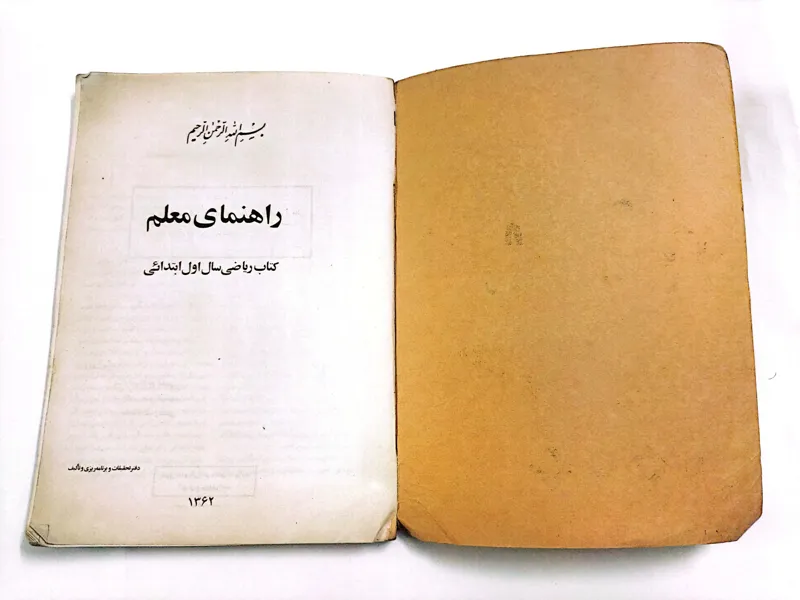 بسم الله الرحمن الرحیم
راهنمای معلم
کتاب ریاضی سال اول ابتدائی
دفتر تحقیقات و برنامه‌ریزی و تألیف
۱۳۶۲